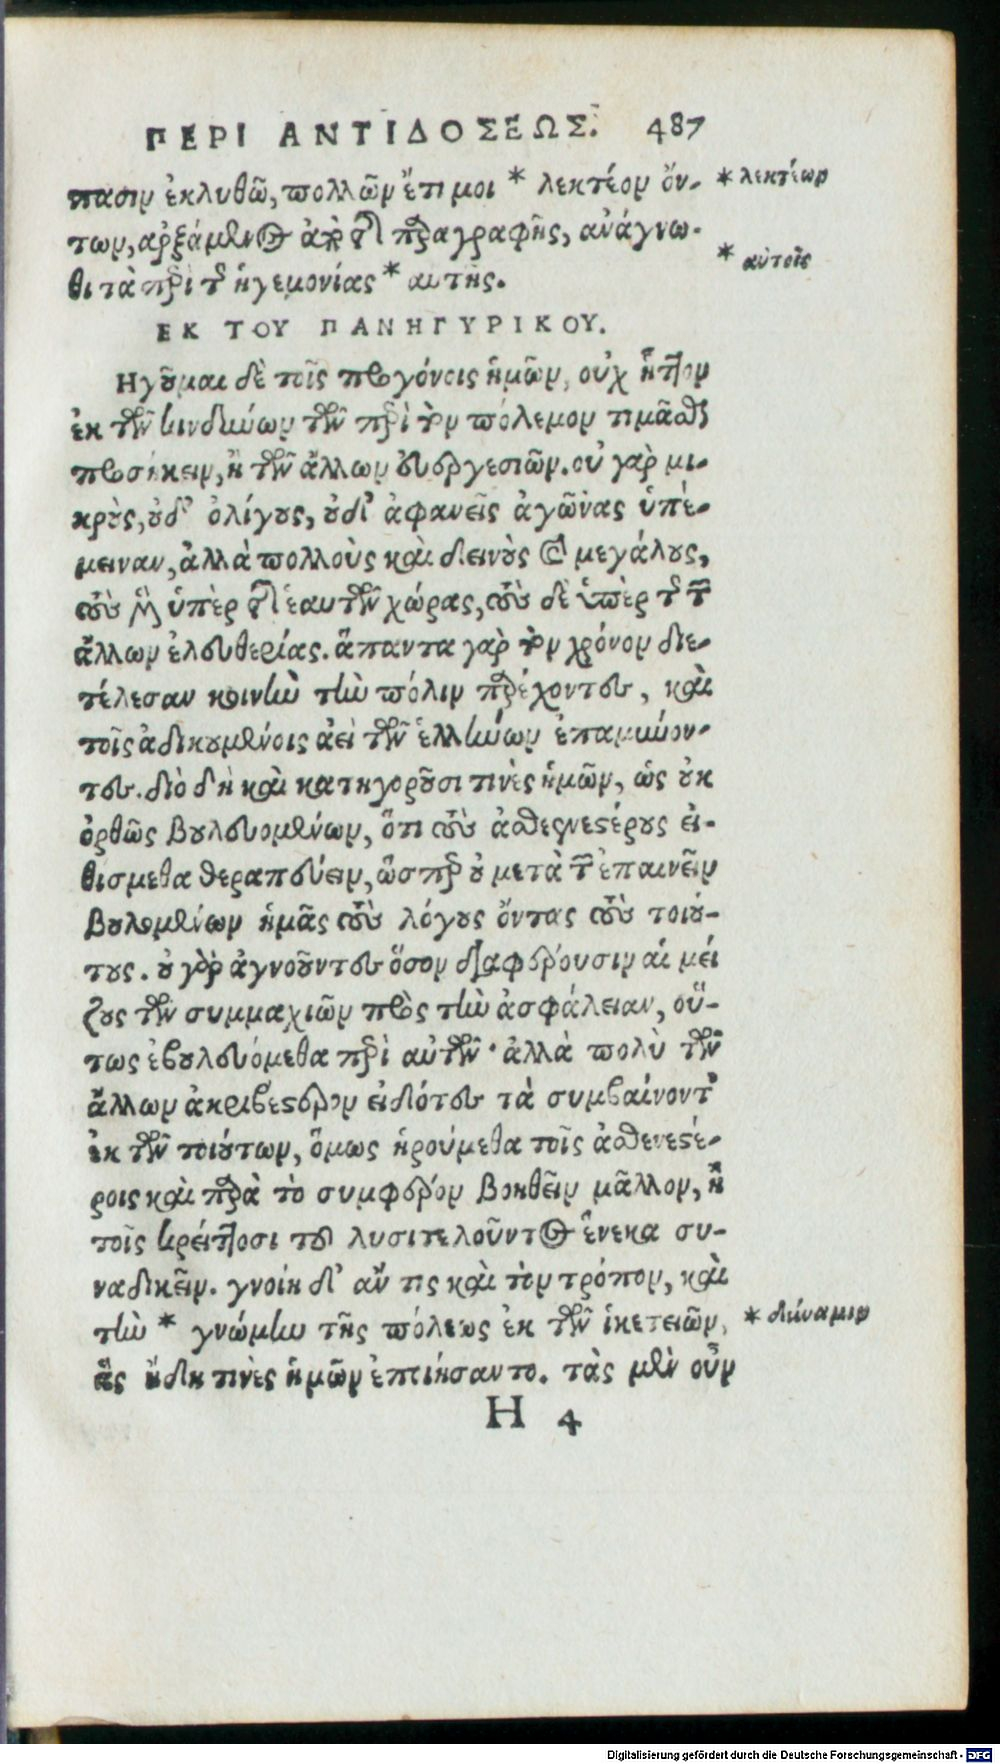 ΠΕΡΙ ΑΝΤΙΔΟΣΕΩΣ. 487
πασιν ἐκλυθῶ, πολλῶν ἔτι μοι * λεκτέον ὄν- * λεκτέων
των, ἀρξάμενος ἀπὸ τῆς παραγραφῆς, ἀνάγνω-
θι τὰ περὶ τῆς ἡγεμονίας * αυτῆς. * αὐτοῖς
ΕΚ ΤΟΥ ΠΑΝΗΓΥΡΙΚΟΥ.
Ηγοῦμαι δὲ τοῖς προγόνοις ἡμῶν, οὐχ ἧττον
ἐκ τῶν κινδύνων τῶν περὶ τὸν πόλεμον τιμᾶσθαι
προσήκειν, ἢ τῶν ἄλλων εὐεργεσιῶν. οὐ γὰρ μι-
κροὺς, οὐδ' ὀλίγους, οὐδ' ἀφανεῖς ἀγῶνας ὑπέ-
μειναν, ἀλλὰ πολλοὺς καὶ δεινοὺς καὶ μεγάλους,
τοὺς μὲν ὑπὲρ τῆς ἑαυτῶν χώρας, τοὺς δὲ ὑπὲρ τῆς τῶν
ἄλλων ἐλευθερίας. ἅπαντα γὰρ τὸν χρόνον διε-
τέλεσαν κοινὴν τὴν πόλιν παρέχοντες, καὶ
τοῖς ἀδικουμένοις ἀεὶ τῶν ἑλλήνων ἐπαμύνον-
τες. διὸ δὴ καὶ κατηγοροῦσι τινὲς ἡμῶν, ὡς οὐκ
ὀρθῶς βουλευομένων, ὅτι τοὺς ἀσθενεστέρους εἰ-
θίσμεθα θεραπεύειν, ὥσπερ οὐ μετὰ τῶν ἐπαινεῖν
βουλομένων ἡμᾶς τοὺς λόγους ὄντας τοὺς τοιού-
τους. οὐ γὰρ ἀγνοοῦντες ὅσον διαφέρουσιν αἱ μεί
ζους τῶν συμμαχιῶν πρὸς τὴν ἀσφάλειαν, οὕ-
τως ἐβουλευόμεθα περὶ αὐτῶν· ἀλλὰ πολὺ τῶν
ἄλλων ἀκριβέστερον εἰδότες τὰ συμβαίνοντ'
ἐκ τῶν τοιούτων, ὅμως ἡρούμεθα τοῖς ἀσθενεστέ-
ροις καὶ παρὰ τὸ συμφέρον βοηθεῖν μᾶλλον, ἢ
τοῖς κρείττοσι τοῦ λυσιτελοῦντος ἕνεκα συ-
ναδικεῖν. γνοίη δ' ἄν τις καὶ τὸν τρόπον, καὶ
τὴν * γνώμην τῆς πόλεως ἐκ τῶν ἱκετειῶν, * δύναμιν
ἃς ἤδη τινὲς ἡμῶν ἐποιήσαντο. τὰς μὲν οὖν
H 4
Digitalisierung gefördert durch die Deutsche Forschungsgemeinschaft - DFG